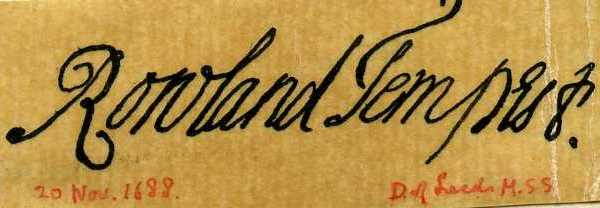 Rowland Tempest.
20 Nov. 1688. D. of Leeds M.SS